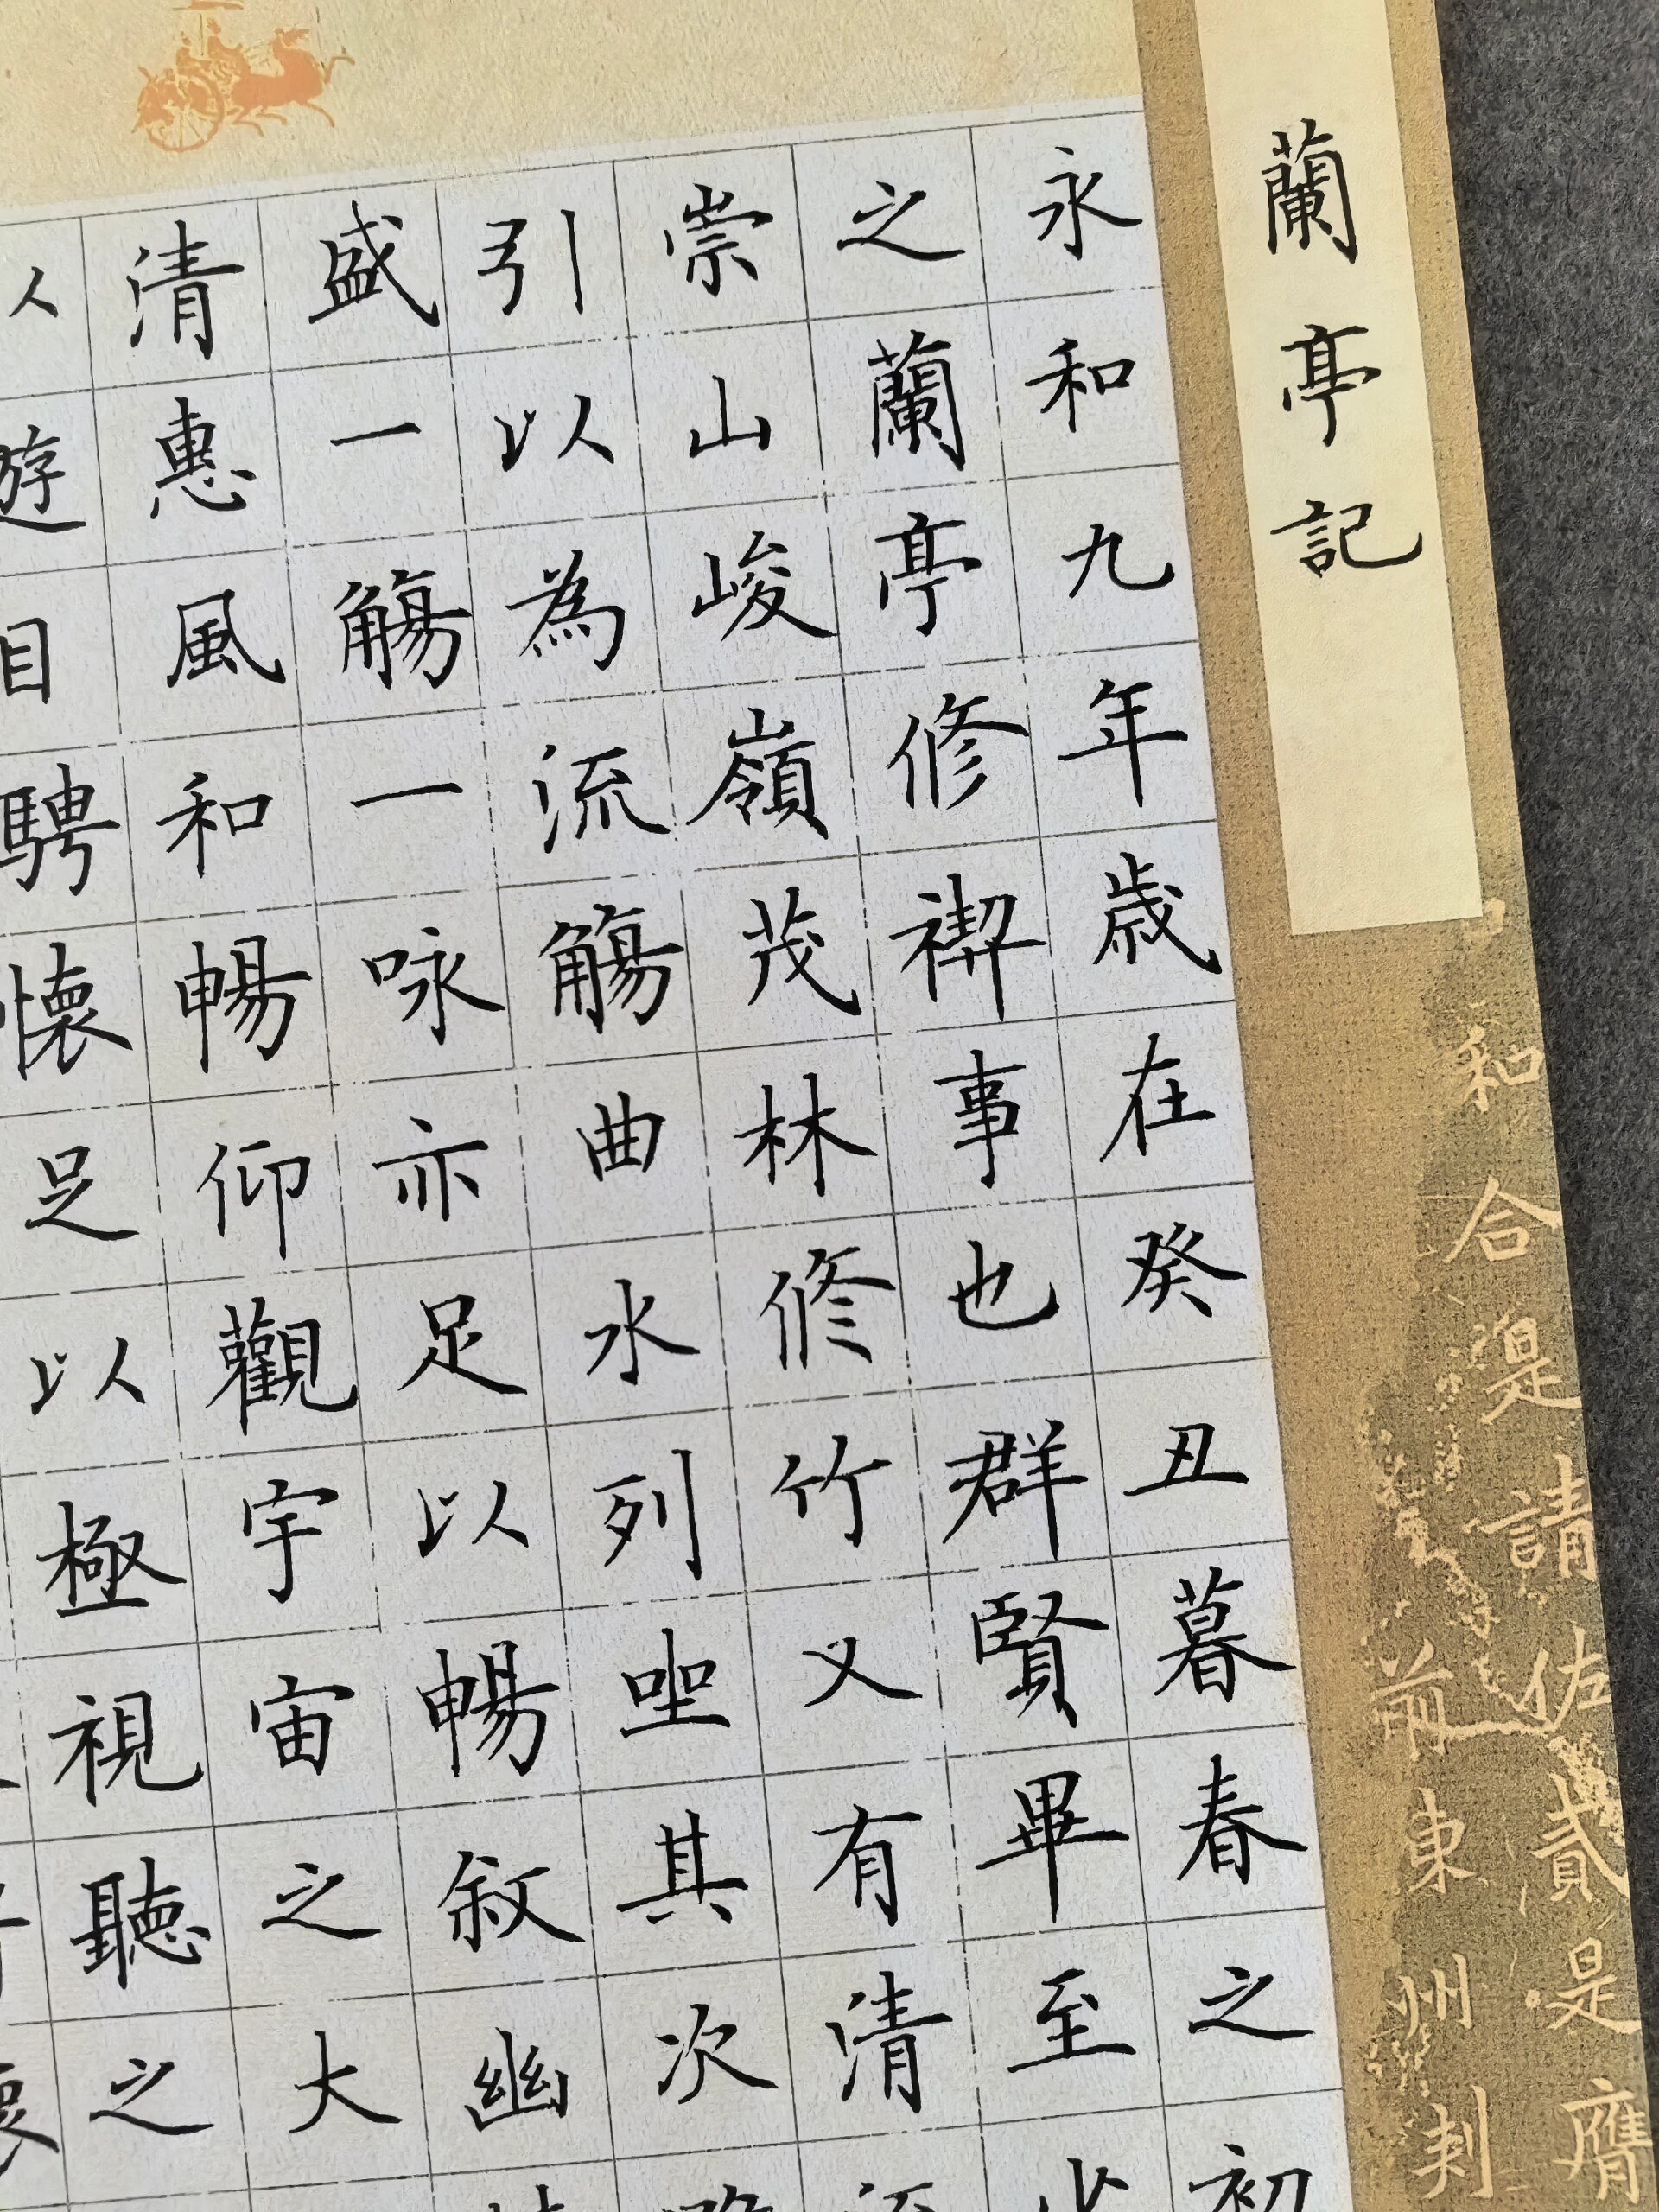 蘭亭記
永和九年歳在癸丑暮春之初
之蘭亭修禊事也群賢畢至少
崇山峻嶺茂林修竹又有清流
引以為流觴曲水列坐其次
盛一觴一咏亦足以暢叙幽
清惠風和暢仰觀宇宙之大
以遊目騁懷足以極視聽之
和合湜請佐貳是膺
前東州刾